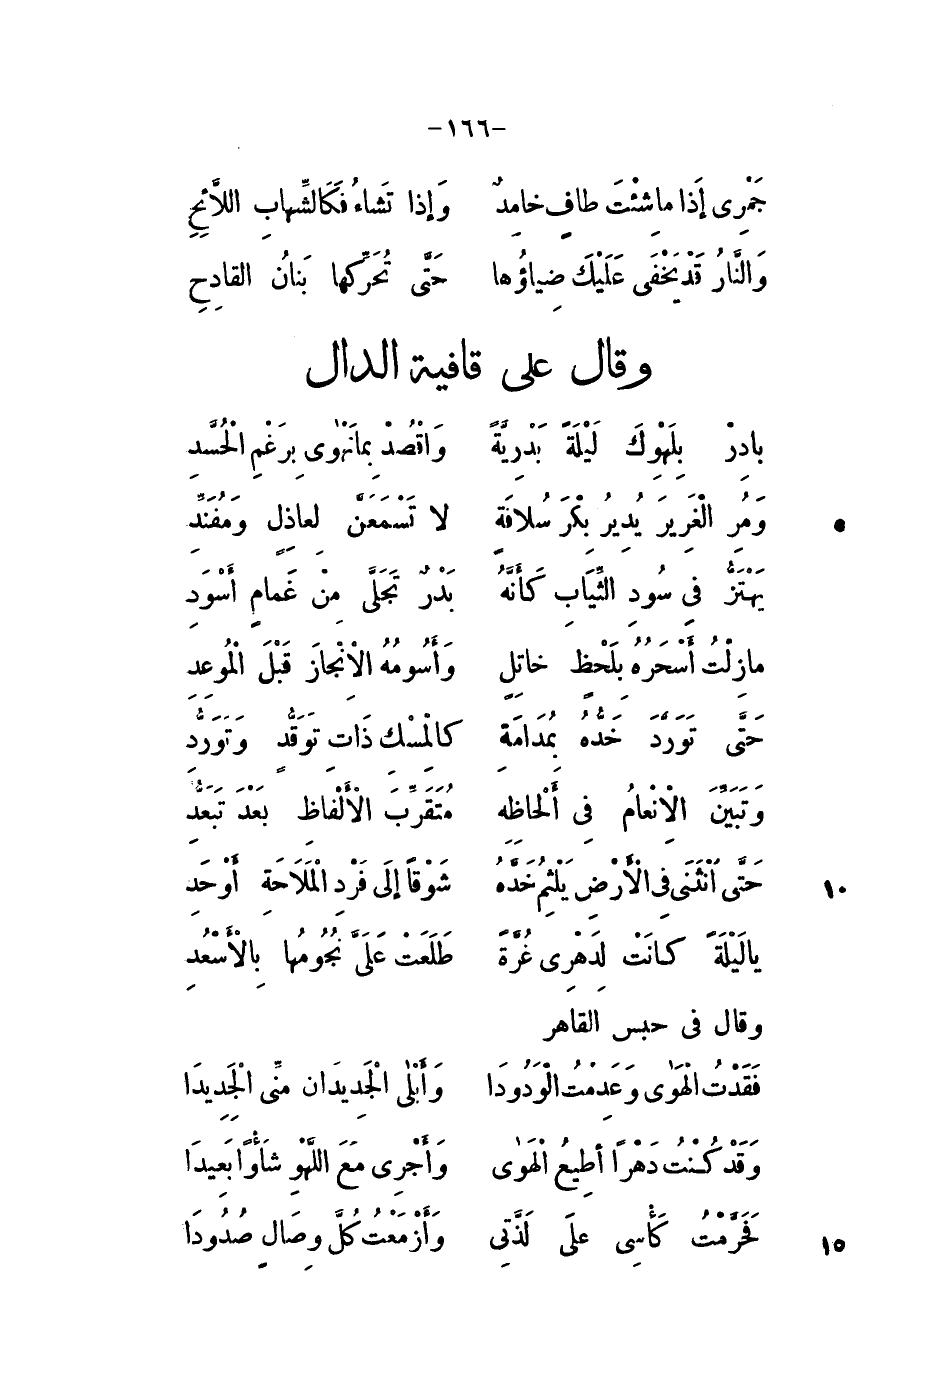 -١٦٦-
جَمْرِى إَذا ماشِئْتَ طافٍ خامِدٌ وَإذا تَشاءُ فَكَالشِّهابِ اللاَّئِحِ
وَالنَّارُ قَدْ يَخْفَى عَلَيْكَ ضِياؤُها حَتَّى تُحَرِّكها بَنانُ القادِحِ
وقال على قافية الدال
بادِرْ بِلَهْوِكَ لَيْلَةً بَدْرِيَّةً وَاقْصُدْ بِمانَهْوٰى بِرَغْمِ الْحُسَّدِ
وَمُرِ الْغَرِيرَ يُدِيرُ بِكْرَ سُلافَةٍ لا تَسْمَعَنَّ لعاذِلٍ وَمُفَنِّدِ ٥
يَهْتَزُّ فِي سُودِ الثِّيَابِ كَأَنَّهُ بَدْرٌ تَجَلَّى مِنْ غَمامٍ أَسْوَدِ
مازِلْتُ أَسْحَرُهُ بِلَحْظٍ خاتِلٍ وَأَسُومُهُ الْاِنْجازَ قَبْلَ الْمُوعِدِ
حَتَّى تَوَرَّدَ خَدُّهُ بِمُدَامَةٍ كالْمِسْكِ ذَاتِ تَوَقُّدٍ وَتَوَرُّدِ
وَتَبَيَّنَ الْاِنْعامُ فى أَلْحاظِهِ مُتَقَرِّبَ الْأَلْفاظِ بَعْدَ تَبَعُّدِ
حَتَّى انْثَنَى فِى الْأَرْضِ يَلْثِمُ خَدَّهُ شَوْقاً إلَى فَرْدِ الْمَلَاحَةِ أَوْحَدِ ١٠
يالَيْلَةً كانَتْ لِدَهْرِى غُرَّةً طَلَعَتْ عَلَىَّ نُجُومُها بِالْأَسْعُدِ
وقال فى حبس القاهر
فَقَدْتُ الْهَوٰى وَعَدِمْتُ الْوَدُودَا وَأَبْلٰى الْجَدِيدَانِ مِنِّى الْجَدِيدَا
وَقَدْ كُنْتُ دَهْرًا أُطِيعُ الْهَوٰى وَأَجْرِى مَعَ اللَّهْوِ شَأْوًا بَعِيدَا
فَحَرَّمْتُ كَأْسِى عَلَى لَذَّتِى وَأَزْمَعْتُ كُلَّ وِصَالٍ صُدُودَا ١٥